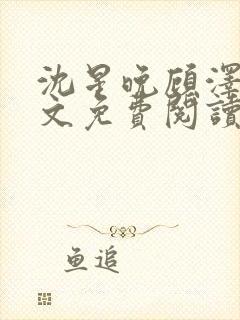 沈星晚顾泽
文免費閱讀
鱼追